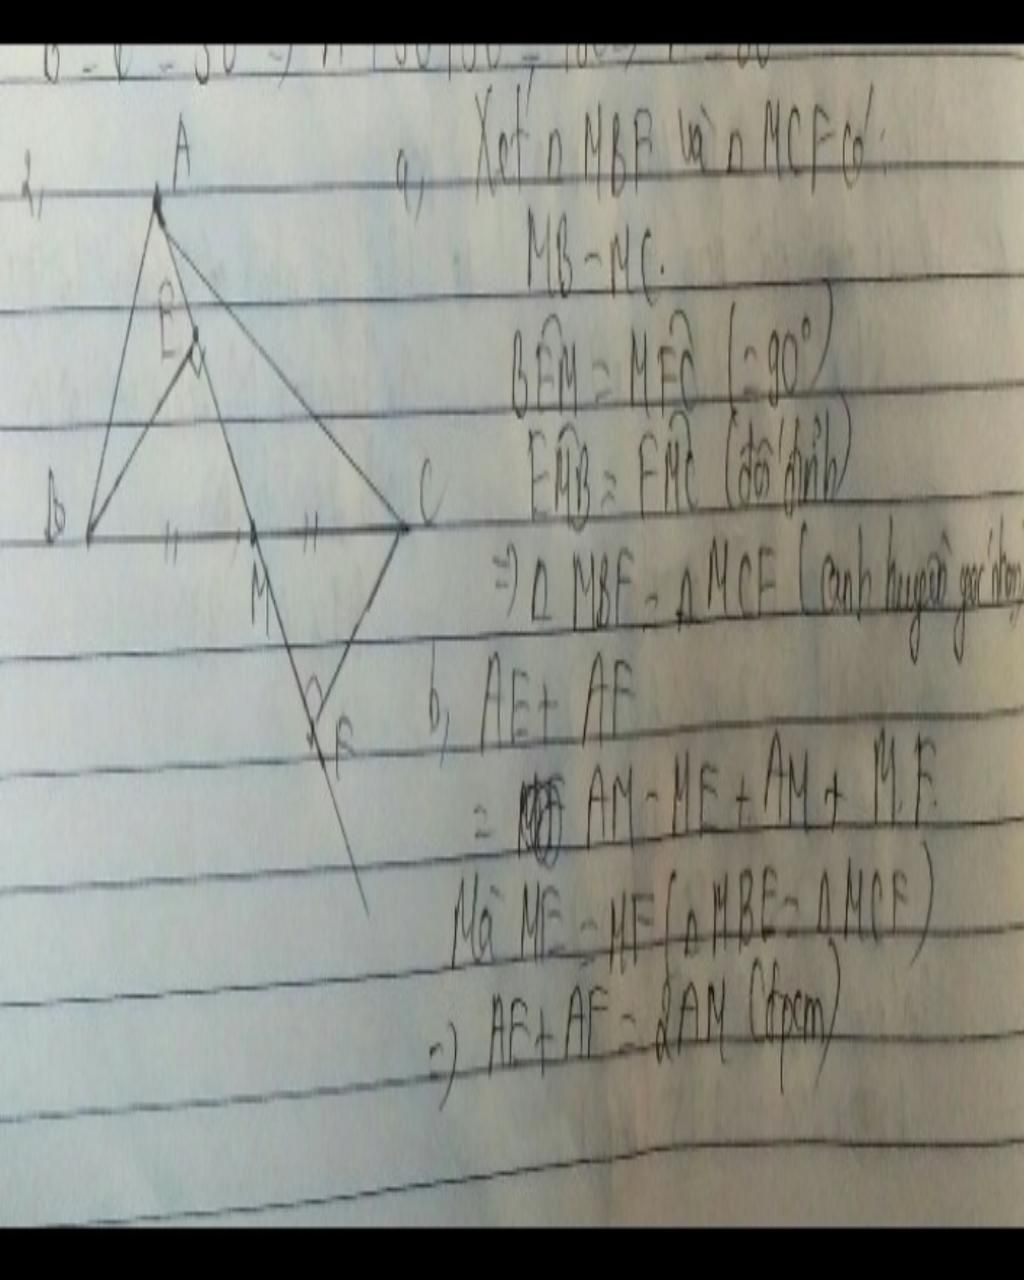 2,
A
E
B
C
M
F
a, Xét Δ MBE và Δ MCF có:
MB = MC.
BEM = MFC (= 90°)
EMB = FMC (đối đỉnh)
=> Δ MBE = Δ MCF (cạnh huyền góc nhọn)
b, AE + AF
= AM - ME + AM + MF
Mà ME = MF (Δ MBE = Δ MCF)
=> AE + AF = 2AM (đpcm)